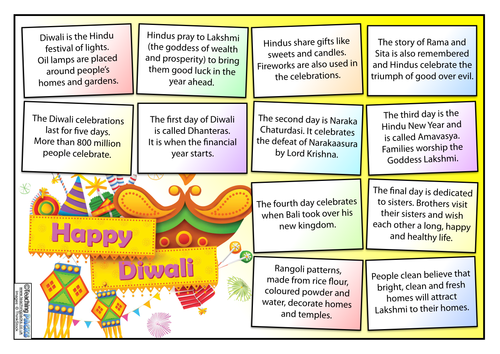 Diwali is the Hindu
festival of lights.
Oil lamps are placed
around people's
homes and gardens.
Hindus pray to Lakshmi
(the goddess of wealth
and prosperity) to bring
them good luck in the
year ahead.
Hindus share gifts like
sweets and candles.
Fireworks are also used in
the celebrations.
The story of Rama and
Sita is also remembered
and Hindus celebrate the
triumph of good over evil.
The Diwali celebrations
last for five days.
More than 800 million
people celebrate.
The first day of Diwali
is called Dhanteras.
It is when the financial
year starts.
The second day is Naraka
Chaturdasi. It celebrates
the defeat of Narakaasura
by Lord Krishna.
The third day is the
Hindu New Year and
is called Amavasya.
Families worship the
Goddess Lakshmi.
The fourth day celebrates
when Bali took over his
new kingdom.
The final day is dedicated
to sisters. Brothers visit
their sisters and wish
each other a long, happy
and healthy life.
Happy
Diwali
Rangoli patterns,
made from rice flour,
coloured powder and
water, decorate homes
and temples.
People clean believe that
bright, clean and fresh
homes will attract
Lakshmi to their homes.
©Teaching Packs